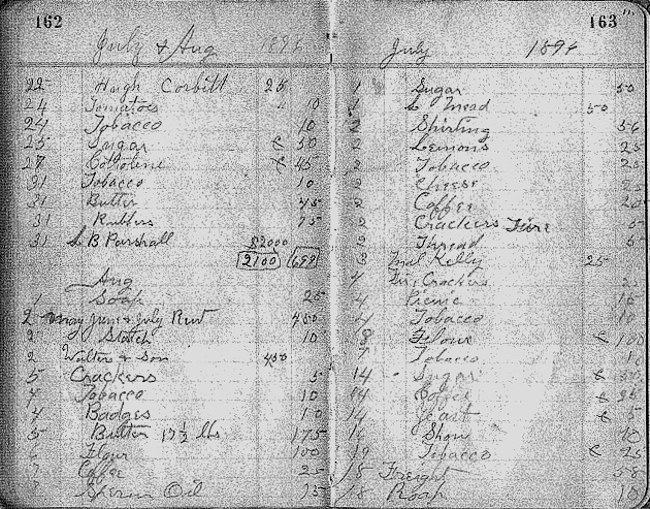 162
July & Aug 1894
22 Hugh Corbitt 25
24 Tomatoes 10
24 Tobacco 10
25 Sugar 50
27 Cottolene 45
31 Tobacco 10
31 Butter 45
31 Rubbers 75
31 B Parshall $2000
2100 699
Aug
1 Soap 25
2 May June & July Rent 450
2 Starch 10
2 Walter & Son 450
5 Crackers 5
4 Tobacco 10
4 Badges 10
5 Butter 17½ lbs 175
6 Flour 100
7 Coffee 25
7 Sperm Oil 15
163
July 1894
1 Sugar 50
1 Mead 50
2 Shirting 56
2 Lemons 25
2 Tobacco 25
2 Cheese 25
2 Coffee 20
2 Crackers Fire 5
Thread 5
3 Kelly 25
4 Fire Crackers
4 Picnic 10
4 Tobacco 10
Flour 100
Tobacco 10
14 Sugar
14 Coffee 25
14 Yeast 5
Show 10
Tobacco 25
18 Freight 58
18 Soap 10